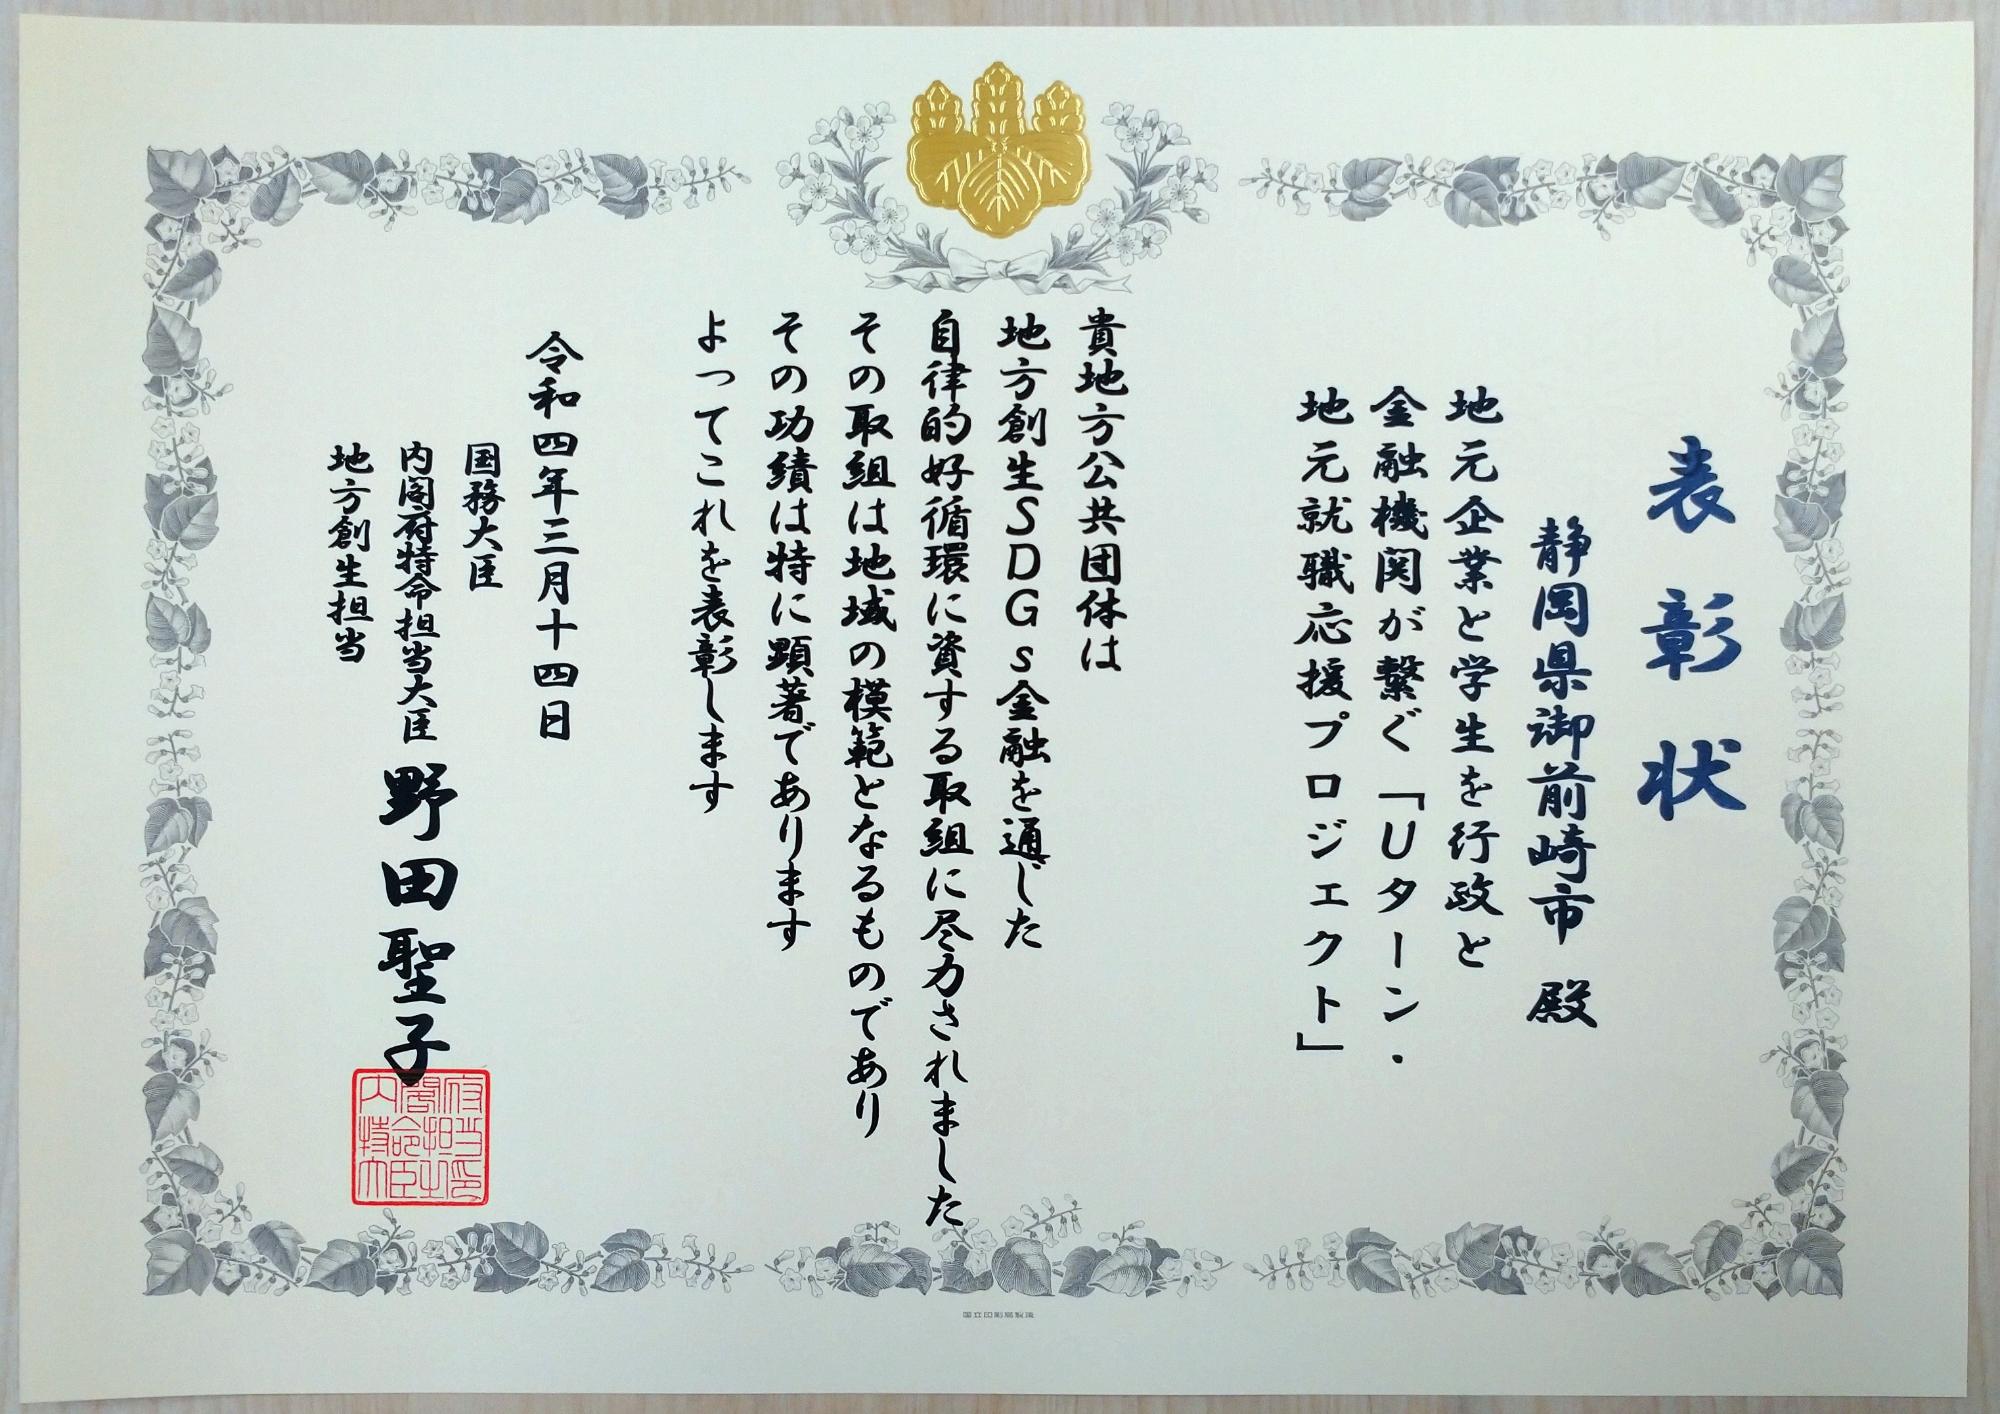 表彰状
静岡県御前崎市 殿
地元企業と学生を行政と
金融機関が繋ぐ「Uターン・
地元就職応援プロジェクト」
貴地方公共団体は
地方創生SDGs金融を通じた
自律的好循環に資する取組に尽力されました
その取組は地域の模範となるものであり
その功績は特に顕著であります
よってこれを表彰します
令和四年三月十四日
国務大臣
内閣府特命担当大臣
地方創生担当
野田聖子
府当印
閣命担之
内特大臣
国立印刷局製造